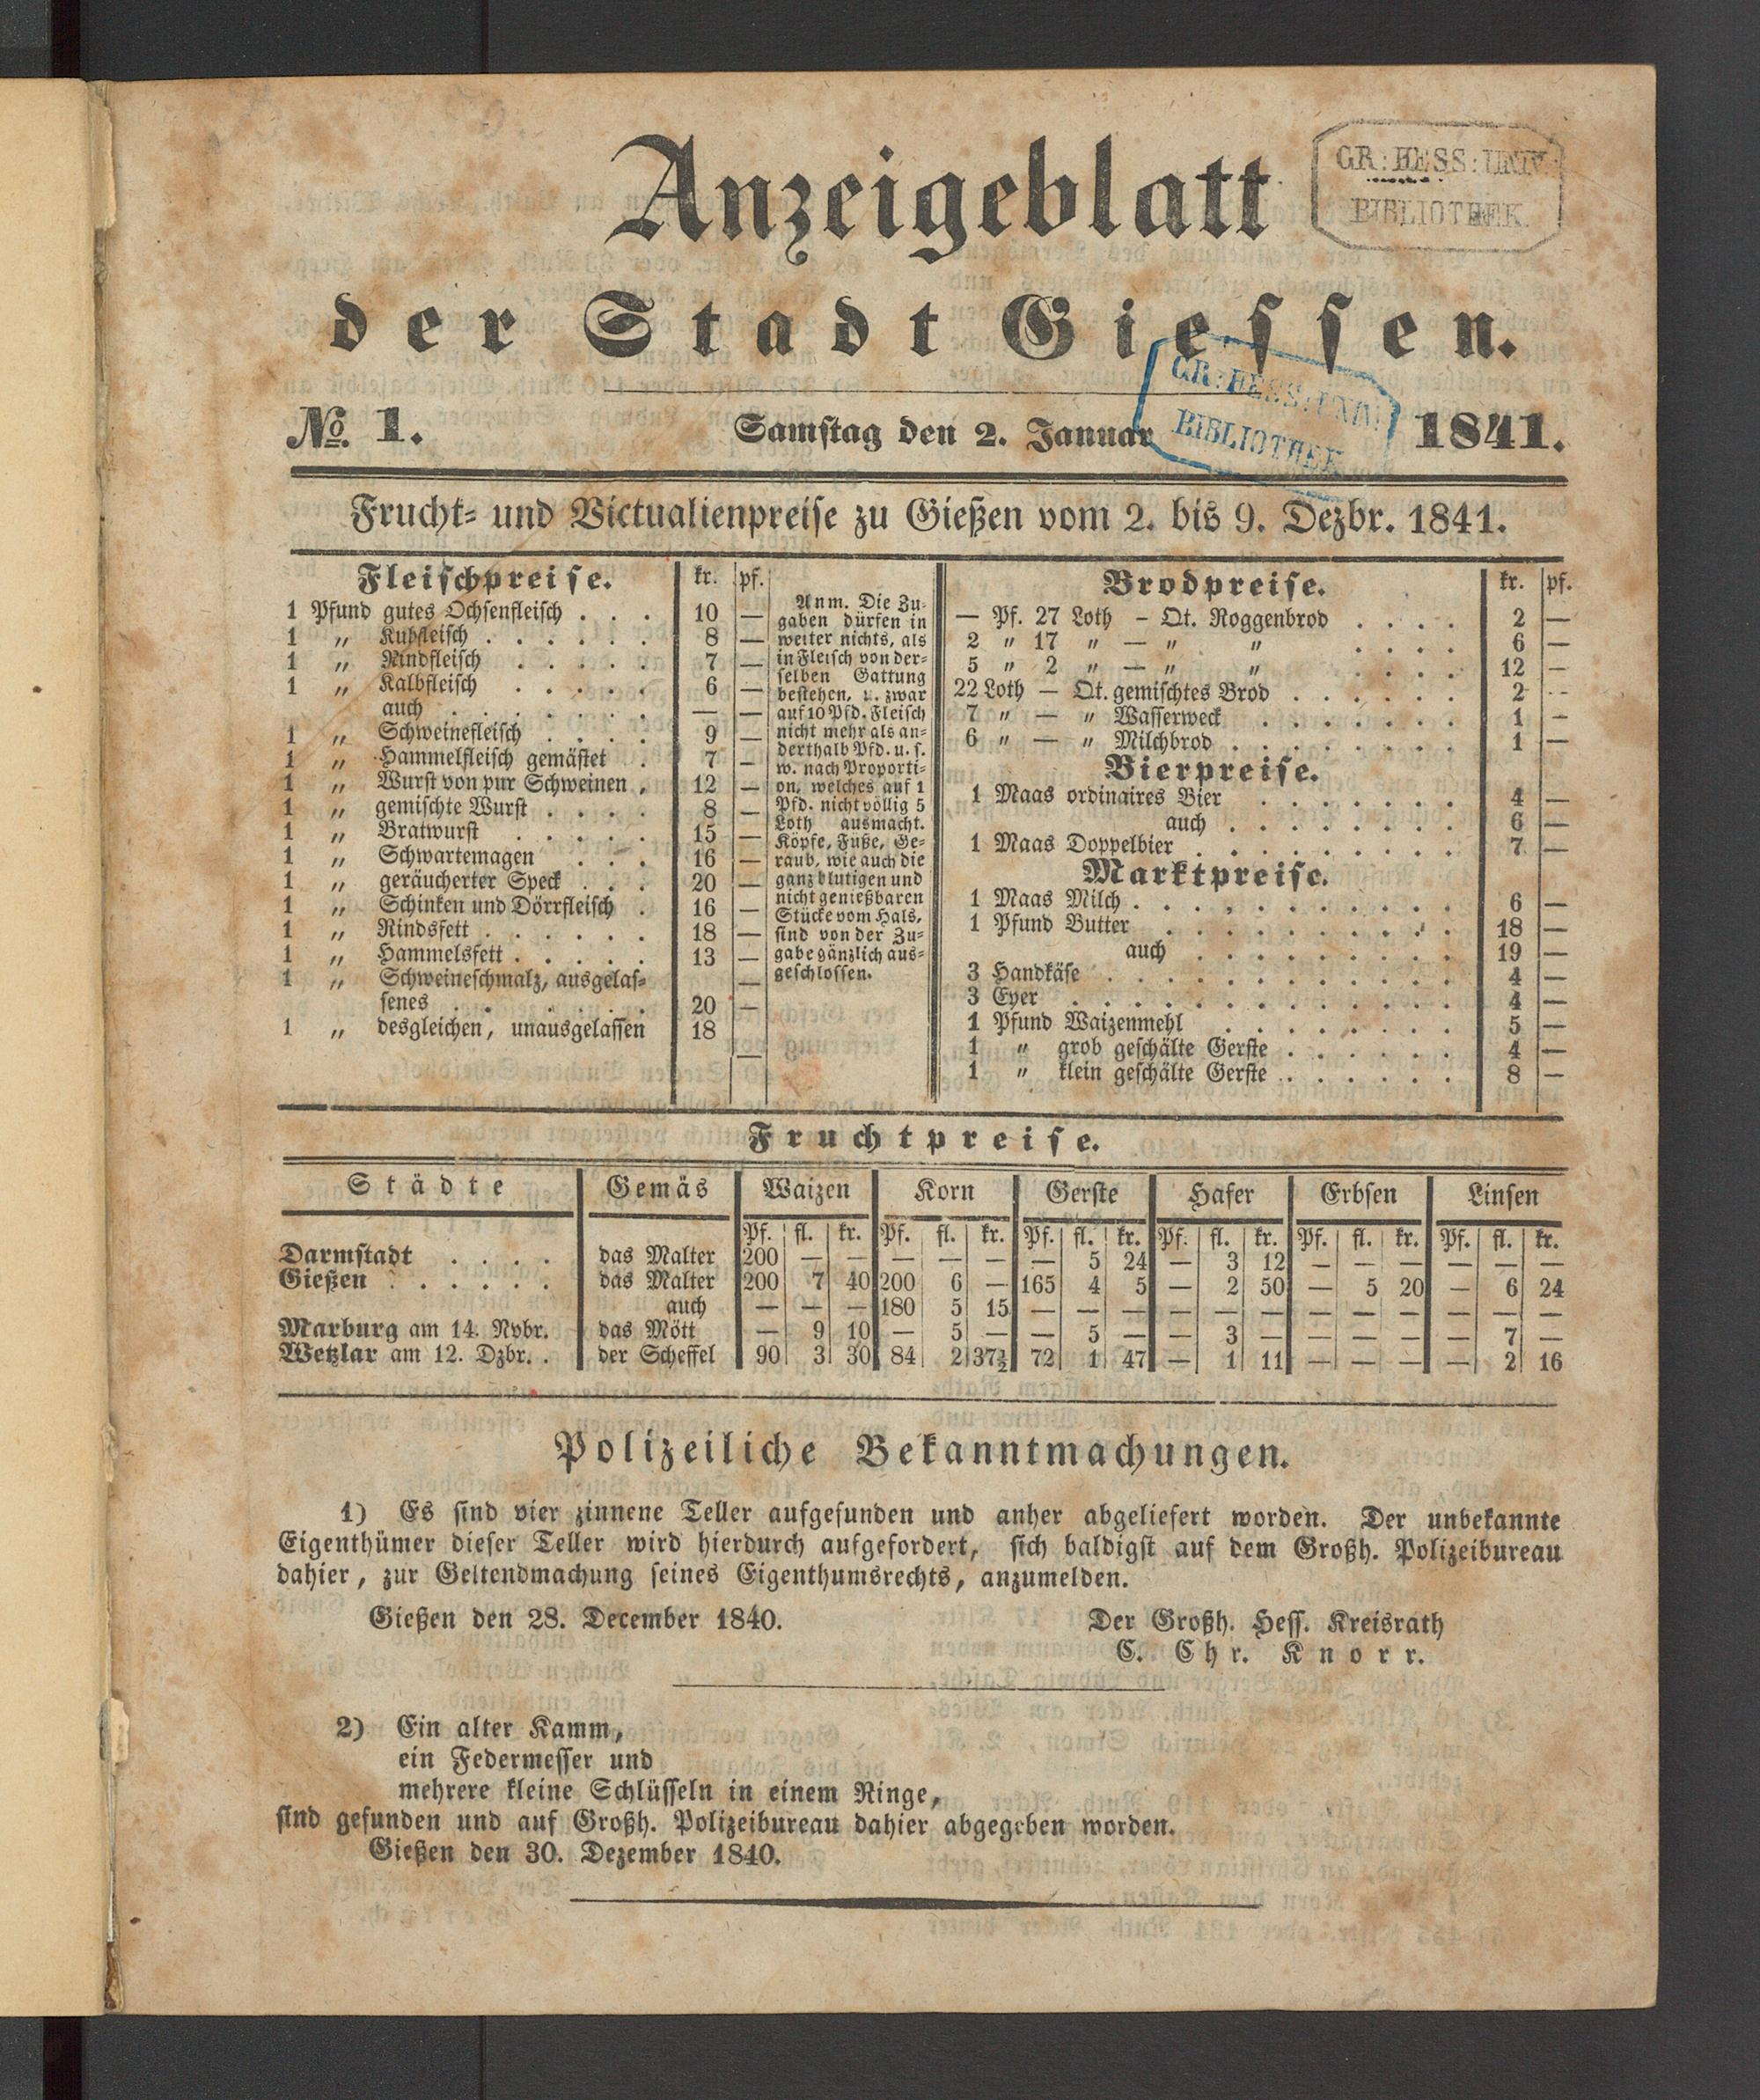 Anzeigeblatt
GR: HESS: UNIV:
BIBLIOTHEK
der Stadt Giessen.
GR: HESS: UNIV:
BIBLIOTHEK
No. 1. Samstag den 2. Januar 1841.
Frucht- und Victualienpreise zu Gießen vom 2. bis 9. Dezbr. 1841.
Fleischpreise. kr. pf.
1 Pfund gutes Ochsenfleisch . . . 10 —
1 „ Kuhfleisch . . . . . . 8 —
1 „ Rindfleisch . . . . . 7 —
1 „ Kalbfleisch . . . . . 6 —
auch . . . . . . . — —
1 „ Schweinefleisch . . . . 9 —
1 „ Hammelfleisch gemästet . 7 —
1 „ Wurst von pur Schweinen . 12 —
1 „ gemischte Wurst . . . . 8 —
1 „ Bratwurst . . . . . 15 —
1 „ Schwartemagen . . . 16 —
1 „ geräucherter Speck . . . 20 —
1 „ Schinken und Dörrfleisch . 16 —
1 „ Rindsfett . . . . . . 18 —
1 „ Hammelsfett . . . . . 13 —
1 „ Schweineschmalz, ausgelas- —
senes . . . . . . 20 —
1 „ desgleichen, unausgelassen 18 —
Anm. Die Zu-
gaben dürfen in
weiter nichts, als
in Fleisch von der-
selben Gattung
bestehen, u. zwar
auf 10 Pfd. Fleisch
nicht mehr als an-
derthalb Pfd. u. s.
w. nach Proporti-
on, welches auf 1
Pfd. nicht völlig 5
Loth ausmacht.
Köpfe, Füße, Ge-
raub, wie auch die
ganz blutigen und
nicht genießbaren
Stücke vom Hals,
sind von der Zu-
gabe gänzlich aus-
geschlossen.
Brodpreise. kr. pf.
— Pf. 27 Loth – Qt. Roggenbrod . . . . 2 —
2 „ 17 „ — „ „ . . . . 6 —
5 „ 2 „ — „ „ . . . . 12 —
22 Loth — Qt. gemischtes Brod . . . . . . 2 —
7 „ — „ Wasserweck . . . . . . . 1 —
6 „ — „ Milchbrod . . . . . . . . 1 —
Bierpreise.
1 Maas ordinaires Bier . . . . . . . 4 —
auch . . . . . . . . 6 —
1 Maas Doppelbier . . . . . . . . . 7 —
Marktpreise.
1 Maas Milch . . . . . . . . . . . 6 —
1 Pfund Butter . . . . . . . . . . 18 —
auch . . . . . . . . . 19 —
3 Handkäse . . . . . . . . . . . . 4 —
3 Eyer . . . . . . . . . . . . . 4 —
1 Pfund Waizenmehl . . . . . . . . 5 —
1 „ grob geschälte Gerste . . . . . . 4 —
1 „ klein geschälte Gerste . . . . . . 8 —
Fruchtpreise.
Städte Gemäs Waizen Korn Gerste Hafer Erbsen Linsen
Pf. fl. kr. Pf. fl. kr. Pf. fl. kr. Pf. fl. kr. Pf. fl. kr. Pf. fl. kr.
Darmstadt . . . . das Malter 200 — — — — — — 5 24 — 3 12 — — — — — —
Gießen . . . . . . das Malter 200 7 40 200 6 — 165 4 5 — 2 50 — 5 20 — 6 24
auch — — — 180 5 15 — — — — — — — — — — — —
Marburg am 14. Nvbr. das Mött — 9 10 — 5 — — 5 — — 3 — — — — — 7 —
Wetzlar am 12. Dzbr. . der Scheffel 90 3 30 84 2 37½ 72 1 47 — 1 11 — — — — 2 16
Polizeiliche Bekanntmachungen.
1) Es sind vier zinnene Teller aufgefunden und anher abgeliefert worden. Der unbekannte
Eigenthümer dieser Teller wird hierdurch aufgefordert, sich baldigst auf dem Großh. Polizeibureau
dahier, zur Geltendmachung seines Eigenthumsrechts, anzumelden.
Gießen den 28. December 1840. Der Großh. Hess. Kreisrath
C. Chr. Knorr.
2) Ein alter Kamm,
ein Federmesser und
mehrere kleine Schlüsseln in einem Ringe,
sind gefunden und auf Großh. Polizeibureau dahier abgegeben worden.
Gießen den 30. Dezember 1840.